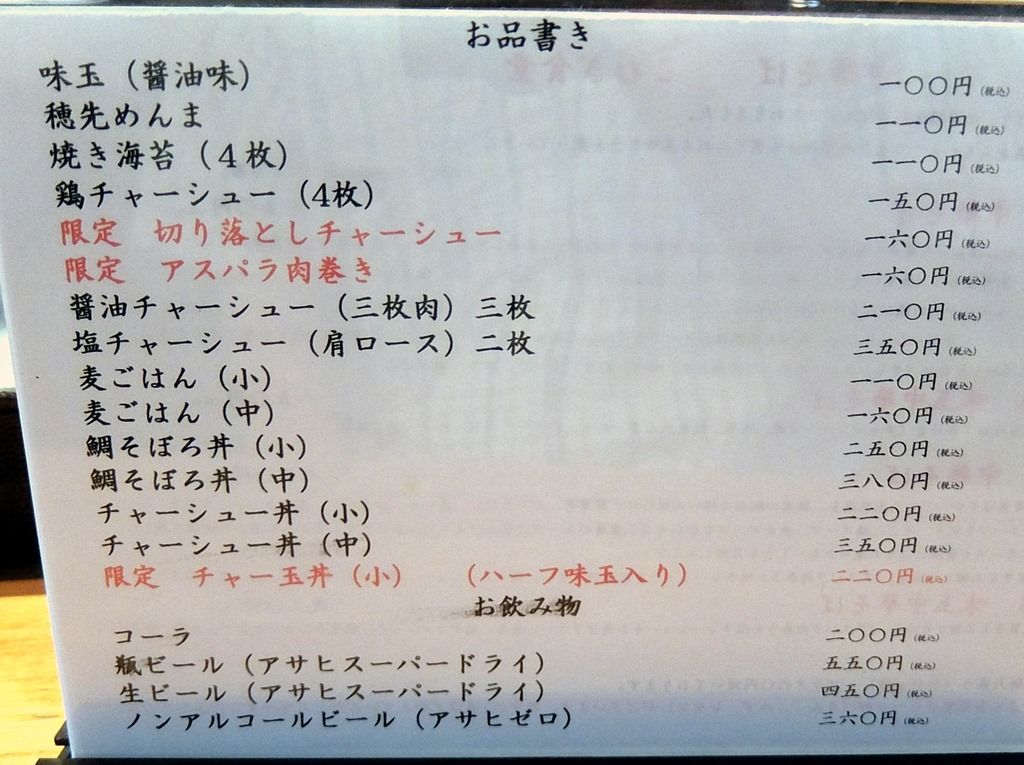 お品書き
味玉（醤油味） 一〇〇円（税込）
穂先めんま 一一〇円（税込）
焼き海苔（４枚） 一一〇円（税込）
鶏チャーシュー（4枚） 一五〇円（税込）
限定　切り落としチャーシュー 一六〇円（税込）
限定　アスパラ肉巻き 一六〇円（税込）
醤油チャーシュー（三枚肉）三枚 二一〇円（税込）
塩チャーシュー（肩ロース）二枚 三五〇円（税込）
麦ごはん（小） 一一〇円（税込）
麦ごはん（中） 一六〇円（税込）
鯛そぼろ丼（小） 二五〇円（税込）
鯛そぼろ丼（中） 三八〇円（税込）
チャーシュー丼（小） 二二〇円（税込）
チャーシュー丼（中） 三五〇円（税込）
限定　チャー玉丼（小）　（ハーフ味玉入り） 二二〇円（税込）
お飲み物
コーラ 二〇〇円（税込）
瓶ビール（アサヒスーパードライ） 五五〇円（税込）
生ビール（アサヒスーパードライ） 四五〇円（税込）
ノンアルコールビール（アサヒゼロ） 三六〇円（税込）